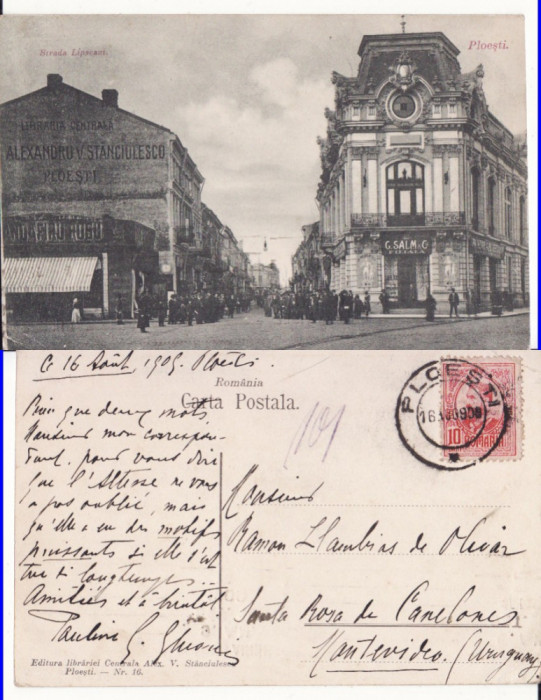 Strada Lipscani.
Ploești.
LIBRĂRIA CENTRALA
ALEXANDRU V. STĂNCIULESCO
PLOEȘTI
G. SALM & C
Ce 16 Août, 1909. Ploesti.
România
Carta Postala.
PLOESTI
10
ROMANIA
101
Rien que deux mots
Monsieur mon correspon-
dant, pour vous dire
que l'Altesse ne vous
a pas oublié, mais
qu'elle a eu des motifs
puissants si elle s'est
tue si longtemps...
Amitiés et à bientôt
Pauline G.
Monsieur
Ramon Llambias de Olivar
Santa Rosa de Canelones
Montevideo. (Uruguay)
Editura librăriei Centrala Alex. V. Stănciulesc
Ploești. — Nr. 16.